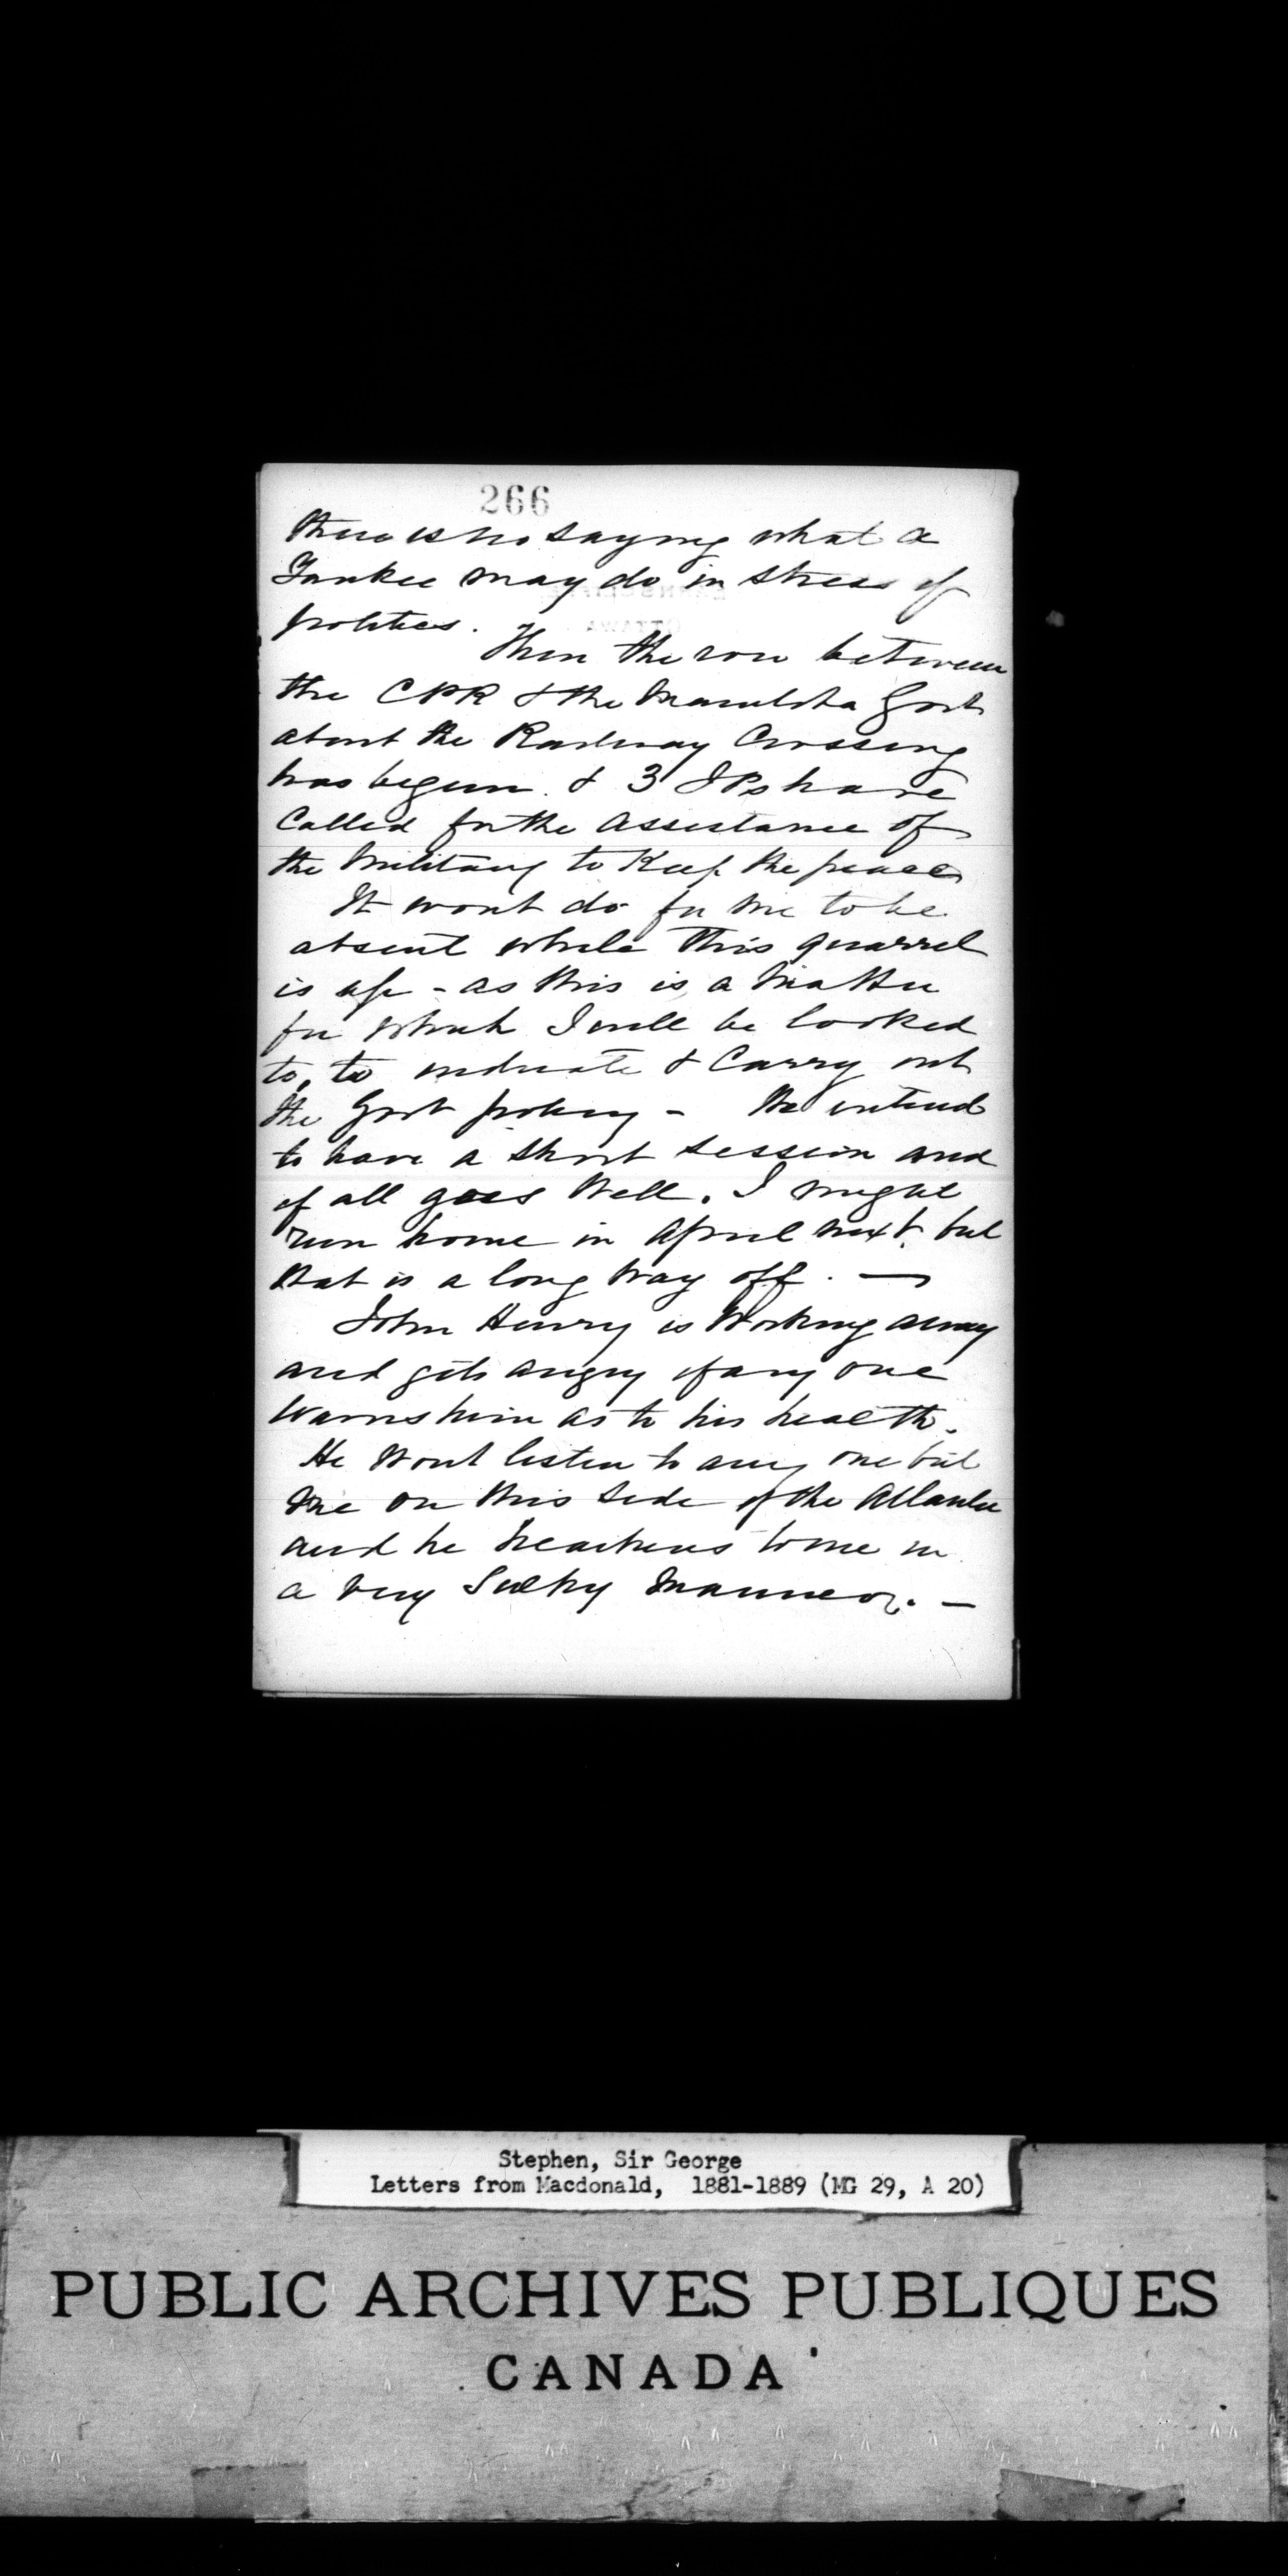 266
there is no saying what a
Yankee may do in stress of
politics.
Then the row between
the CPR & the Manitoba Govt
about the Railway Crossing
has begun. & 3 JPs have
Called for the assistance of
the Military to Keep the peace
It wont do for me to be
absent while this quarrel
is up - as this is a matter
for which I will be looked
to, to indicate & Carry out
the Govt policy - We intend
to have a short session and
if all goes well. I might
run home in April next. but
that is a long way off. —
John Henry is working away
and gets angry if any one
warns him as to his health.
He wont listen to any one but
me on this side of the Atlantic
and he hearkens to me in
a very Sulky manner. —
Stephen, Sir George
Letters from Macdonald, 1881-1889 (MG 29, A 20)
PUBLIC ARCHIVES PUBLIQUES
CANADA